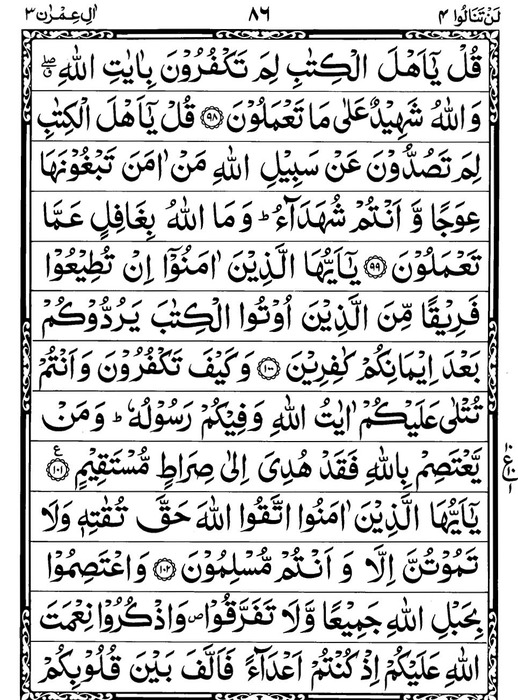 لَنْ تَنَالُوا ٤ ٨٦ اٰلِ عِمْرٰن ٣
قُلْ يٰۤاَهْلَ الْكِتٰبِ لِمَ تَكْفُرُوْنَ بِاٰيٰتِ اللّٰهِ ۖ ق
وَاللّٰهُ شَهِيْدٌ عَلٰى مَا تَعْمَلُوْنَ ﴿٩٨﴾ قُلْ يٰۤاَهْلَ الْكِتٰبِ
لِمَ تَصُدُّوْنَ عَنْ سَبِيْلِ اللّٰهِ مَنْ اٰمَنَ تَبْغُوْنَهَا
عِوَجًا وَّ اَنْتُمْ شُهَدَآءُ ؕ وَ مَا اللّٰهُ بِغَافِلٍ عَمَّا
تَعْمَلُوْنَ ﴿٩٩﴾ يٰۤاَيُّهَا الَّذِيْنَ اٰمَنُوْۤا اِنْ تُطِيْعُوْا
فَرِيْقًا مِّنَ الَّذِيْنَ اُوْتُوا الْكِتٰبَ يَرُدُّوْكُمْ
بَعْدَ اِيْمَانِكُمْ كٰفِرِيْنَ ﴿١٠٠﴾ وَكَيْفَ تَكْفُرُوْنَ وَ اَنْتُمْ
تُتْلٰى عَلَيْكُمْ اٰيٰتُ اللّٰهِ وَ فِيْكُمْ رَسُوْلُهٗ ؕ وَ مَنْ
يَّعْتَصِمْ بِاللّٰهِ فَقَدْ هُدِيَ اِلٰى صِرَاطٍ مُّسْتَقِيْمٍ ﴿١٠١﴾ ع
يٰۤاَيُّهَا الَّذِيْنَ اٰمَنُوا اتَّقُوا اللّٰهَ حَقَّ تُقٰتِهٖ وَلَا
تَمُوْتُنَّ اِلَّا وَ اَنْتُمْ مُّسْلِمُوْنَ ﴿١٠٢﴾ وَ اعْتَصِمُوْا
بِحَبْلِ اللّٰهِ جَمِيْعًا وَّلَا تَفَرَّقُوْا ص وَاذْكُرُوْا نِعْمَتَ
اللّٰهِ عَلَيْكُمْ اِذْ كُنْتُمْ اَعْدَآءً فَاَلَّفَ بَيْنَ قُلُوْبِكُمْ